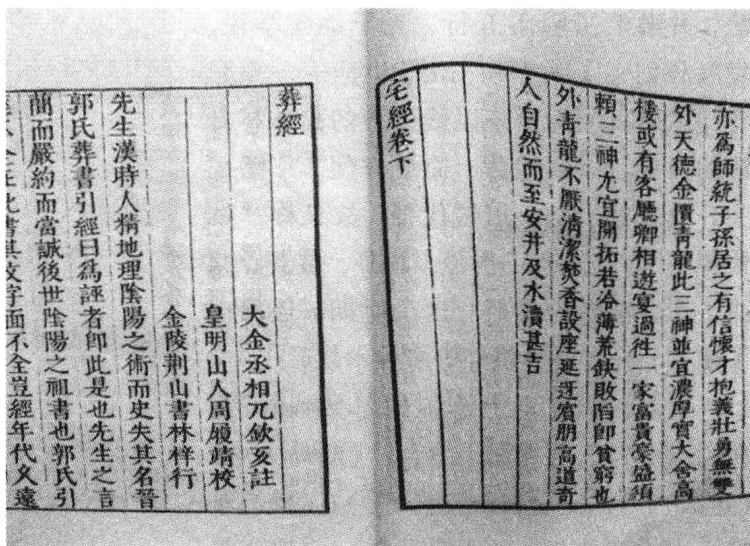 亦爲師統子孫居之有信懷才抱義壯勇無雙
外天德金匱青龍此三神並宜濃厚實大舍高
樓或有客廳卿相遊宴過往一家富貴豪盛須
賴三神尤宜開拓若冷薄荒缺敗陷卽貧窮也
外青龍不厭淸潔焚香設座延迓賓朋高道奇
人自然而至安井及水瀆甚吉
宅經卷下
葬經
大金丞相兀欽亥註
皇明山人周履靖校
金陵荆山書林梓行
先生漢時人精地理陰陽之術而史失其名晉
郭氏葬書引經曰爲誣者卽此是也先生之言
蕳而嚴約而當誠後世陰陽之祖書也郭氏引
不全在此書其文字面不全豈經年代久遠